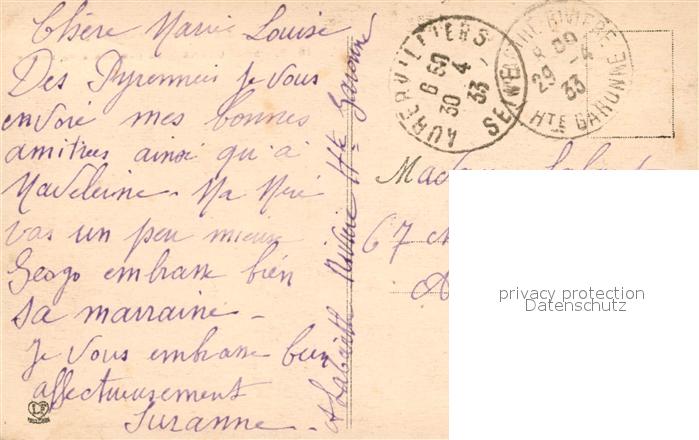 Chère Marie Louise
Des Pyrennées Je vous
envoie mes bonnes
amitiées ainsi qu'a
Madeleine - Ma Mère
vas un peu mieux
Geogo embrasse bien
sa marraine -
Je vous embrasse bien
affectueusement
Suzanne -
Rivière Hte Garonne
AUBERVILLIERS
6 50
30 - 4
33
SEINE
RIVIERE
29 - 4
33
HTE GARONNE
Madame
67
privacy protection
Datenschutz